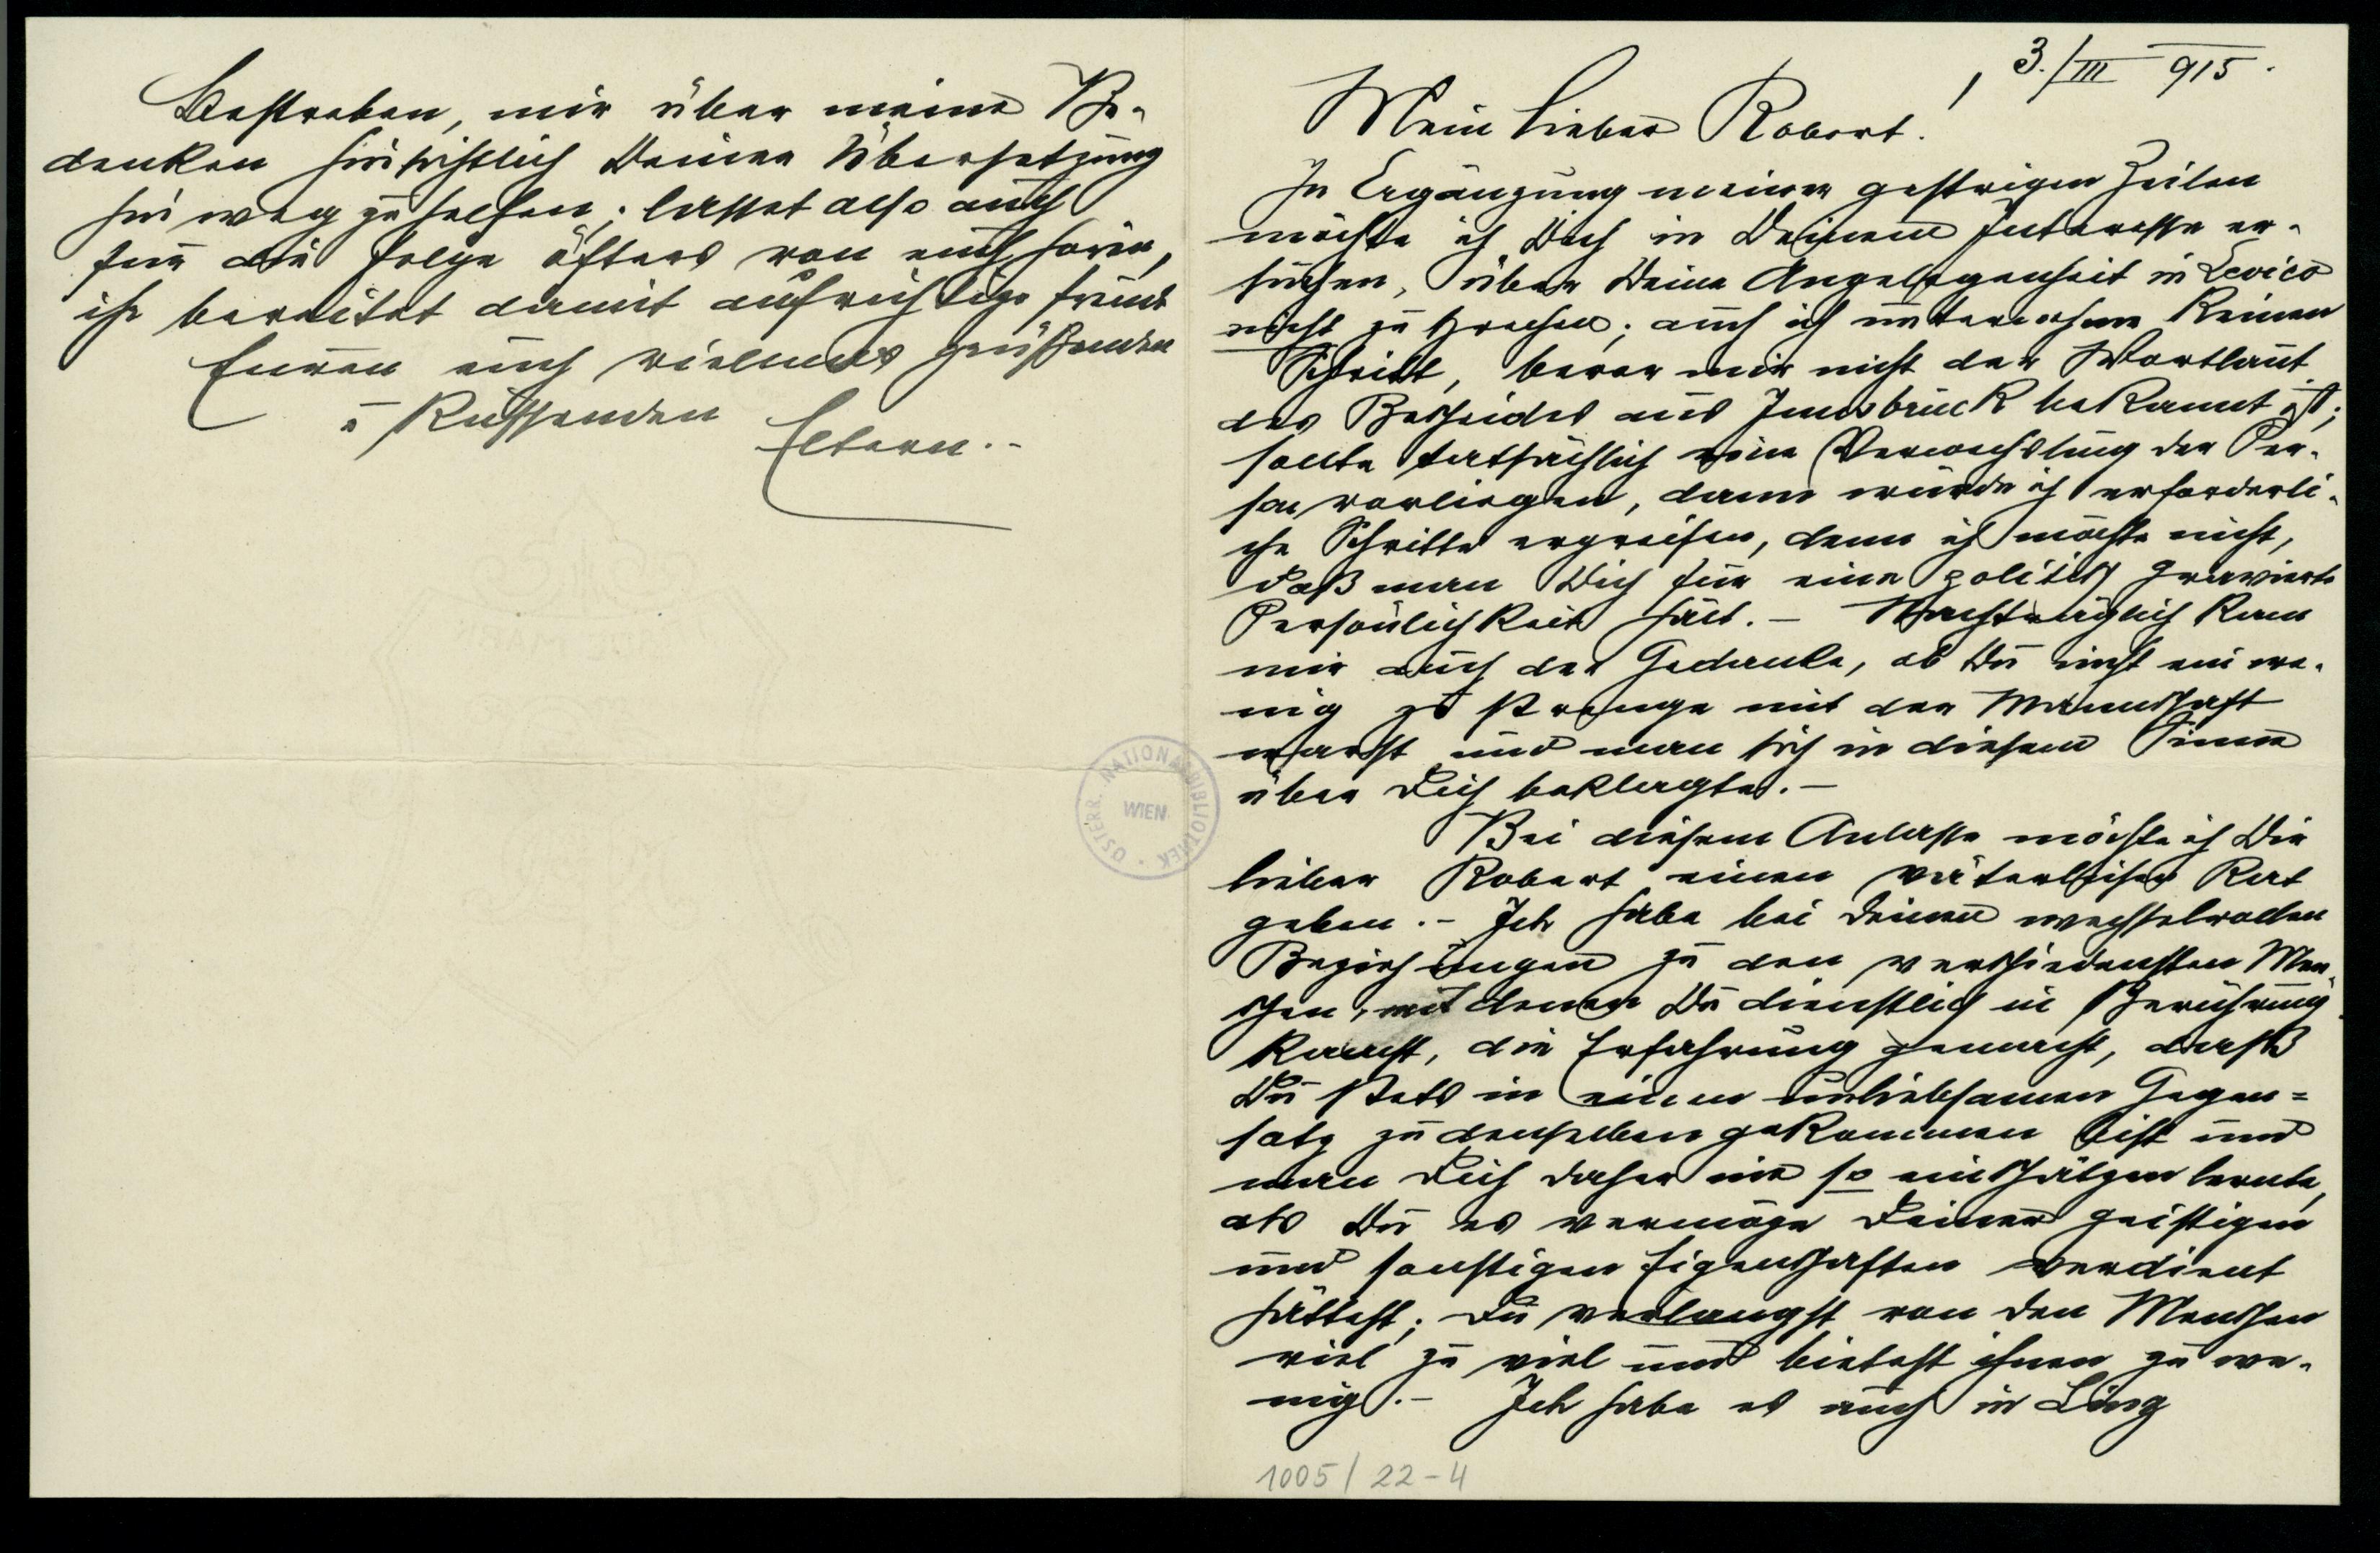 Bestreben, mir über meine Be-
denken hinsichtlich Deiner Übersetzung
hinweg zu helfen; lasset also auch
für die Folge öfters von euch hören,
ihr bereitet damit aufrichtige Freude
Euren euch vielmals grüßenden
u Küssenden
Eltern.-
3./III 915.
Mein lieber Robert!
In Ergänzung meiner gestrigen Zeilen
möchte ich Dich in Deinem Interesse er-
suchen, über Deine Angelegenheit in Levico
nicht zu sprechen; auch ich unternehme keinen
Schritt, bevor mir nicht der Wortlaut
des Bescheides aus Innsbruck bekannt ist;
sollte tatsächlich eine Verwechslung der Per-
son vorliegen, dann würde ich erforderli-
che Schritte ergreifen, denn ich möchte nicht,
daß man Dich für eine politisch gravierte
Persönlichkeit hält.- Nachträglich kam
mir auch der Gedanke, ob Du nicht ein we-
nig zu strenge mit der Mannschaft
warst und man sich in diesem Sinne
über Dich beklagte.-
Bei diesem Anlasse möchte ich Dir
lieber Robert einen väterlichen Rat
geben.- Ich habe bei Deinen wechselvollen
Beziehungen zu den verschiedensten Men-
schen, mit denen Du dienstlich in Berührung
kamst, die Erfahrung gemacht, dass
Du stets in einen unliebsamen Gegen=
satz zu denselben gekommen bist und
man Dich daher nie so einschätzen lernte,
als Du es vermöge Deiner geistigen
und sonstigen Eigenschaften verdient
hättest; Du verlangst von den Menschen
viel zu viel und bietest ihnen zu we-
nig.- Ich habe es auch in Linz
1005/22-4
ÖSTERR. NATIONALBIBLIOTHEK
WIEN